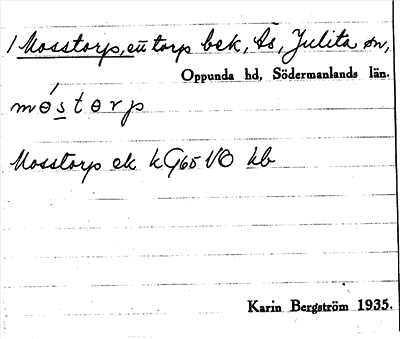 1 Mosstorp, eü torp bek, ts, Julita sn,
Oppunda hd, Södermanlands län.
møstørp
Mosstorp ek kG65 VO kb
Karin Bergström 1935.